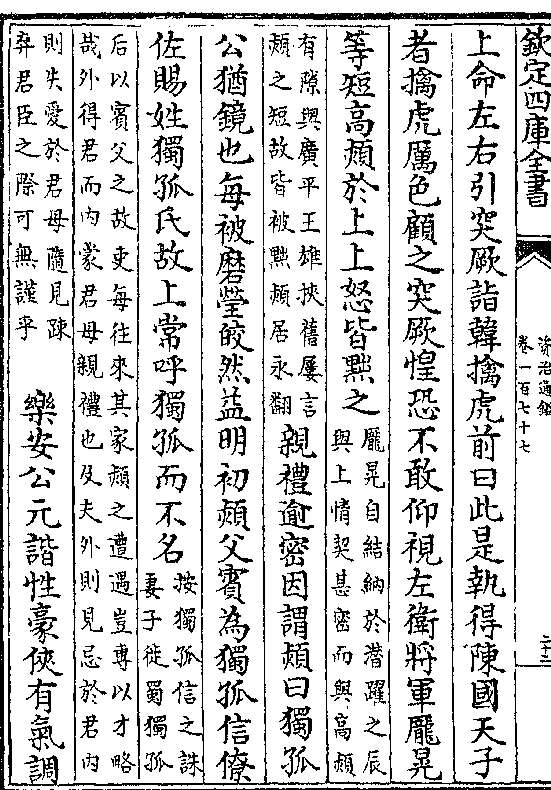 欽定四庫全書
資治通鑑
卷一百七十七
上命左右引突厥詣韓擒虎前曰此是執得陳國天子
者擒虎厲色顧之突厥惶恐不敢仰視左衛將軍龐晃
等短高熲於上上怒皆黜之
龐晃自結納於潛躍之辰
與上情契甚密而與高熲
有隙與廣平王雄挾舊屢言
熲之短故皆被黜熲居永翻
親禮逾密因謂熲曰獨孤
公猶鏡也每被磨瑩皎然益明初熲父賓為獨孤信僚
佐賜姓獨孤氏故上常呼獨孤而不名
按獨孤信之誅
妻子徙蜀獨孤
后以賓父之故吏每往來其家熲之遭遇豈專以才略
哉外得君而内蒙君母親禮也及夫外則見忌於君内
則失愛於君母隨見疎
弃君臣之際可無謹乎
樂安公元諧性豪俠有氣調